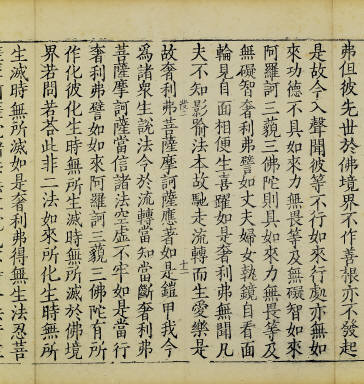 弗但彼先世於佛境界不作善根亦不發起
是故今入聲聞彼等不行如來行處亦無如
來功德不具如來力無畏等及無礙智如來
阿羅訶三藐三佛陀則具如來力無畏等及
無礙智奢利弗譬如丈夫婦女執鏡自看面
輪見自面相便生喜躍如是奢利弗無聞凡
夫不知影喻法本故馳走流轉而生愛樂是
故奢利弗菩薩摩訶薩應著如是鎧甲我今
爲諸衆生說法令於流轉當知當斷奢利弗
菩薩摩訶薩當信諸法空虛不牢如是當行
奢利弗譬如如來阿羅訶三藐三佛陀有所
作化彼化生時無所生滅時無所滅於佛境
界若問若答此非二法如來所化生時無所
生滅時無所滅如是奢利弗得無生法忍菩